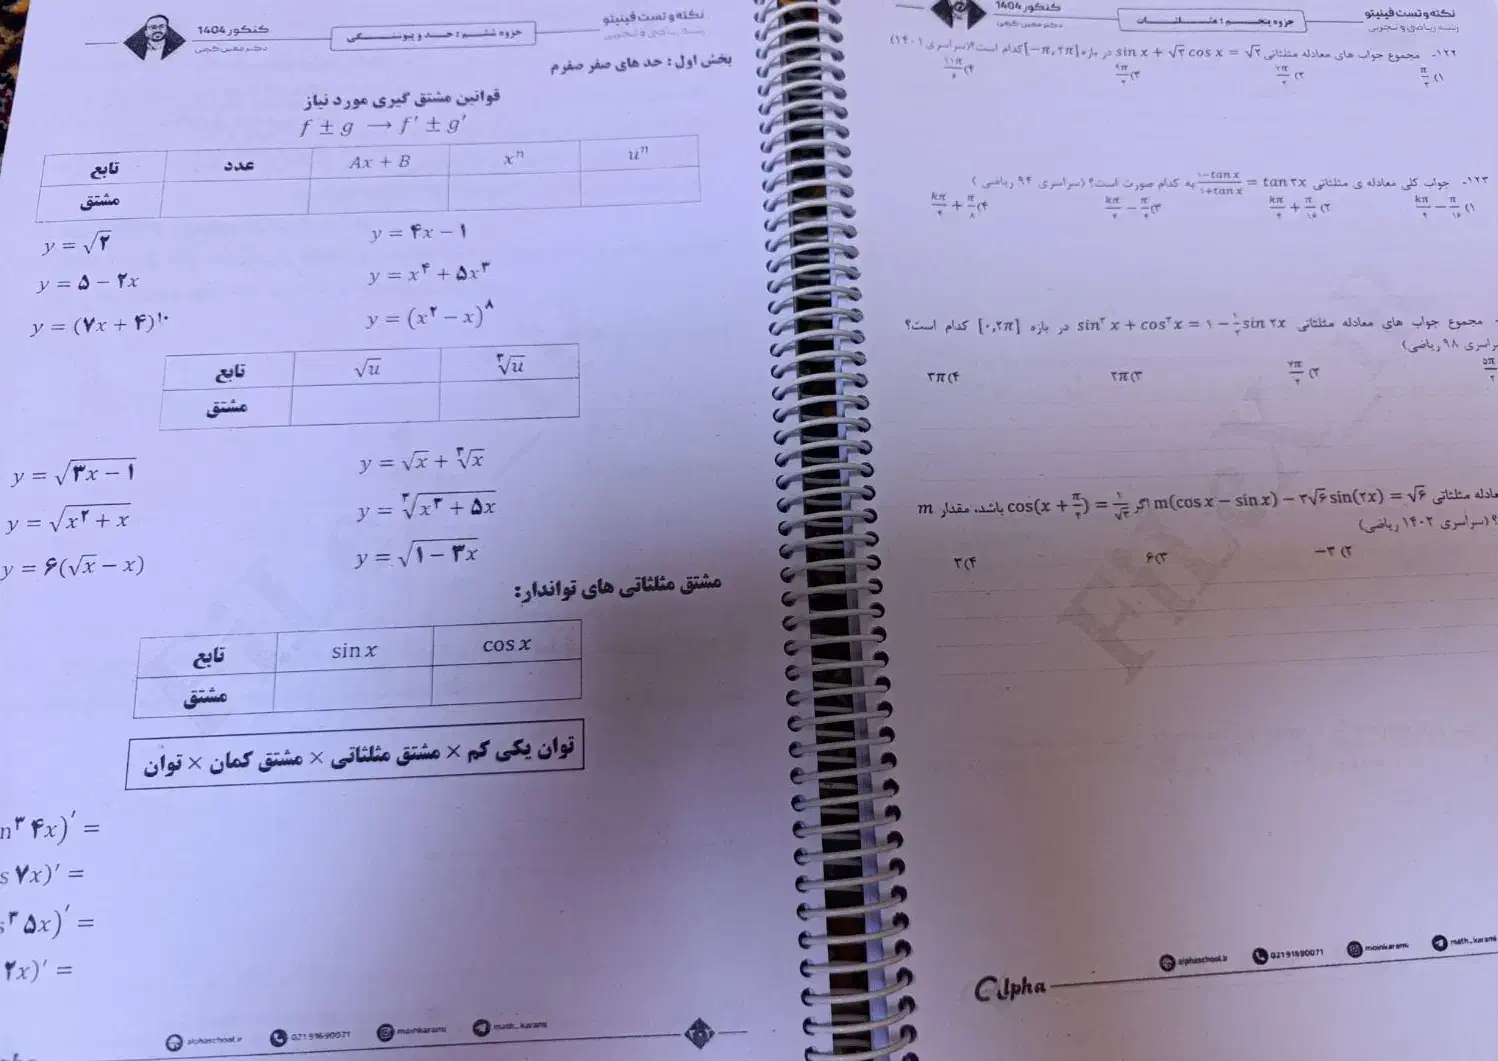 نکته و تست فینیتو
رشته ریاضی و تجربی
جزوه ششم : حد و پیوستگی
کنکور 1404
دکتر معین کرمی
بخش اول : حد های صفر صفرم
قوانین مشتق گیری مورد نیاز
f ± g → f′ ± g′
تابع عدد Ax + B xⁿ uⁿ
مشتق
y = √۲ y = ۴x − ۱
y = ۵ − ۲x y = x⁴ + ۵x³
y = (۷x + ۴)¹⁰ y = (x² − x)⁸
تابع √u ∛u
مشتق
y = √(۳x − ۱) y = √x + ∛x
y = √(x² + x) y = ∛(x³ + ۵x)
y = ۶(√x − x) y = √(۱ − ۳x)
مشتق مثلثاتی های تواندار:
تابع sin x cos x
مشتق
توان یکی کم × مشتق مثلثاتی × مشتق کمان × توان
n³ ۴x)′ =
s ۷x)′ =
s³ ۵x)′ =
۲x)′ =
alphaschool.ir 02191690071 moinkarami math_karami
نکته و تست فینیتو
رشته ریاضی و تجربی
جزوه پنجم : مثلثات
کنکور 1404
دکتر معین کرمی
۱۲۲- مجموع جواب های معادله مثلثاتی sin x + √۳ cos x = √۲ در بازه [−π, ۲π] کدام است؟ (سراسری ۱۴۰۱)
۱۲۳- جواب کلی معادله ی مثلثاتی (۱−tan x)/(۱+tan x) = tan ۳x به کدام صورت است؟ (سراسری ۹۴ ریاضی)
۱) kπ/۴ − π/۱۶ ۲) kπ/۴ + π/۱۶ ۳) kπ/۴ − π/۸ ۴) kπ/۴ + π/۸
مجموع جواب های معادله مثلثاتی sin⁴ x + cos⁴ x = ۱ − ½ sin ۲x در بازه [۰,۲π] کدام است؟
سراسری ۹۸ ریاضی)
۵π/۲ ۲) ۷π/۲ ۳) ۲π ۴) ۳π
عادله مثلثاتی m(cos x − sin x) − ۳√۶ sin(۲x) = √۶ اگر cos(x + π/۴) = ۱/√۳ باشد، مقدار m
؟ (سراسری ۱۴۰۲ ریاضی)
۲) −۳ ۳) ۶ ۴) ۳
Alpha alphaschool.ir 02191690071 moinkarami math_karami